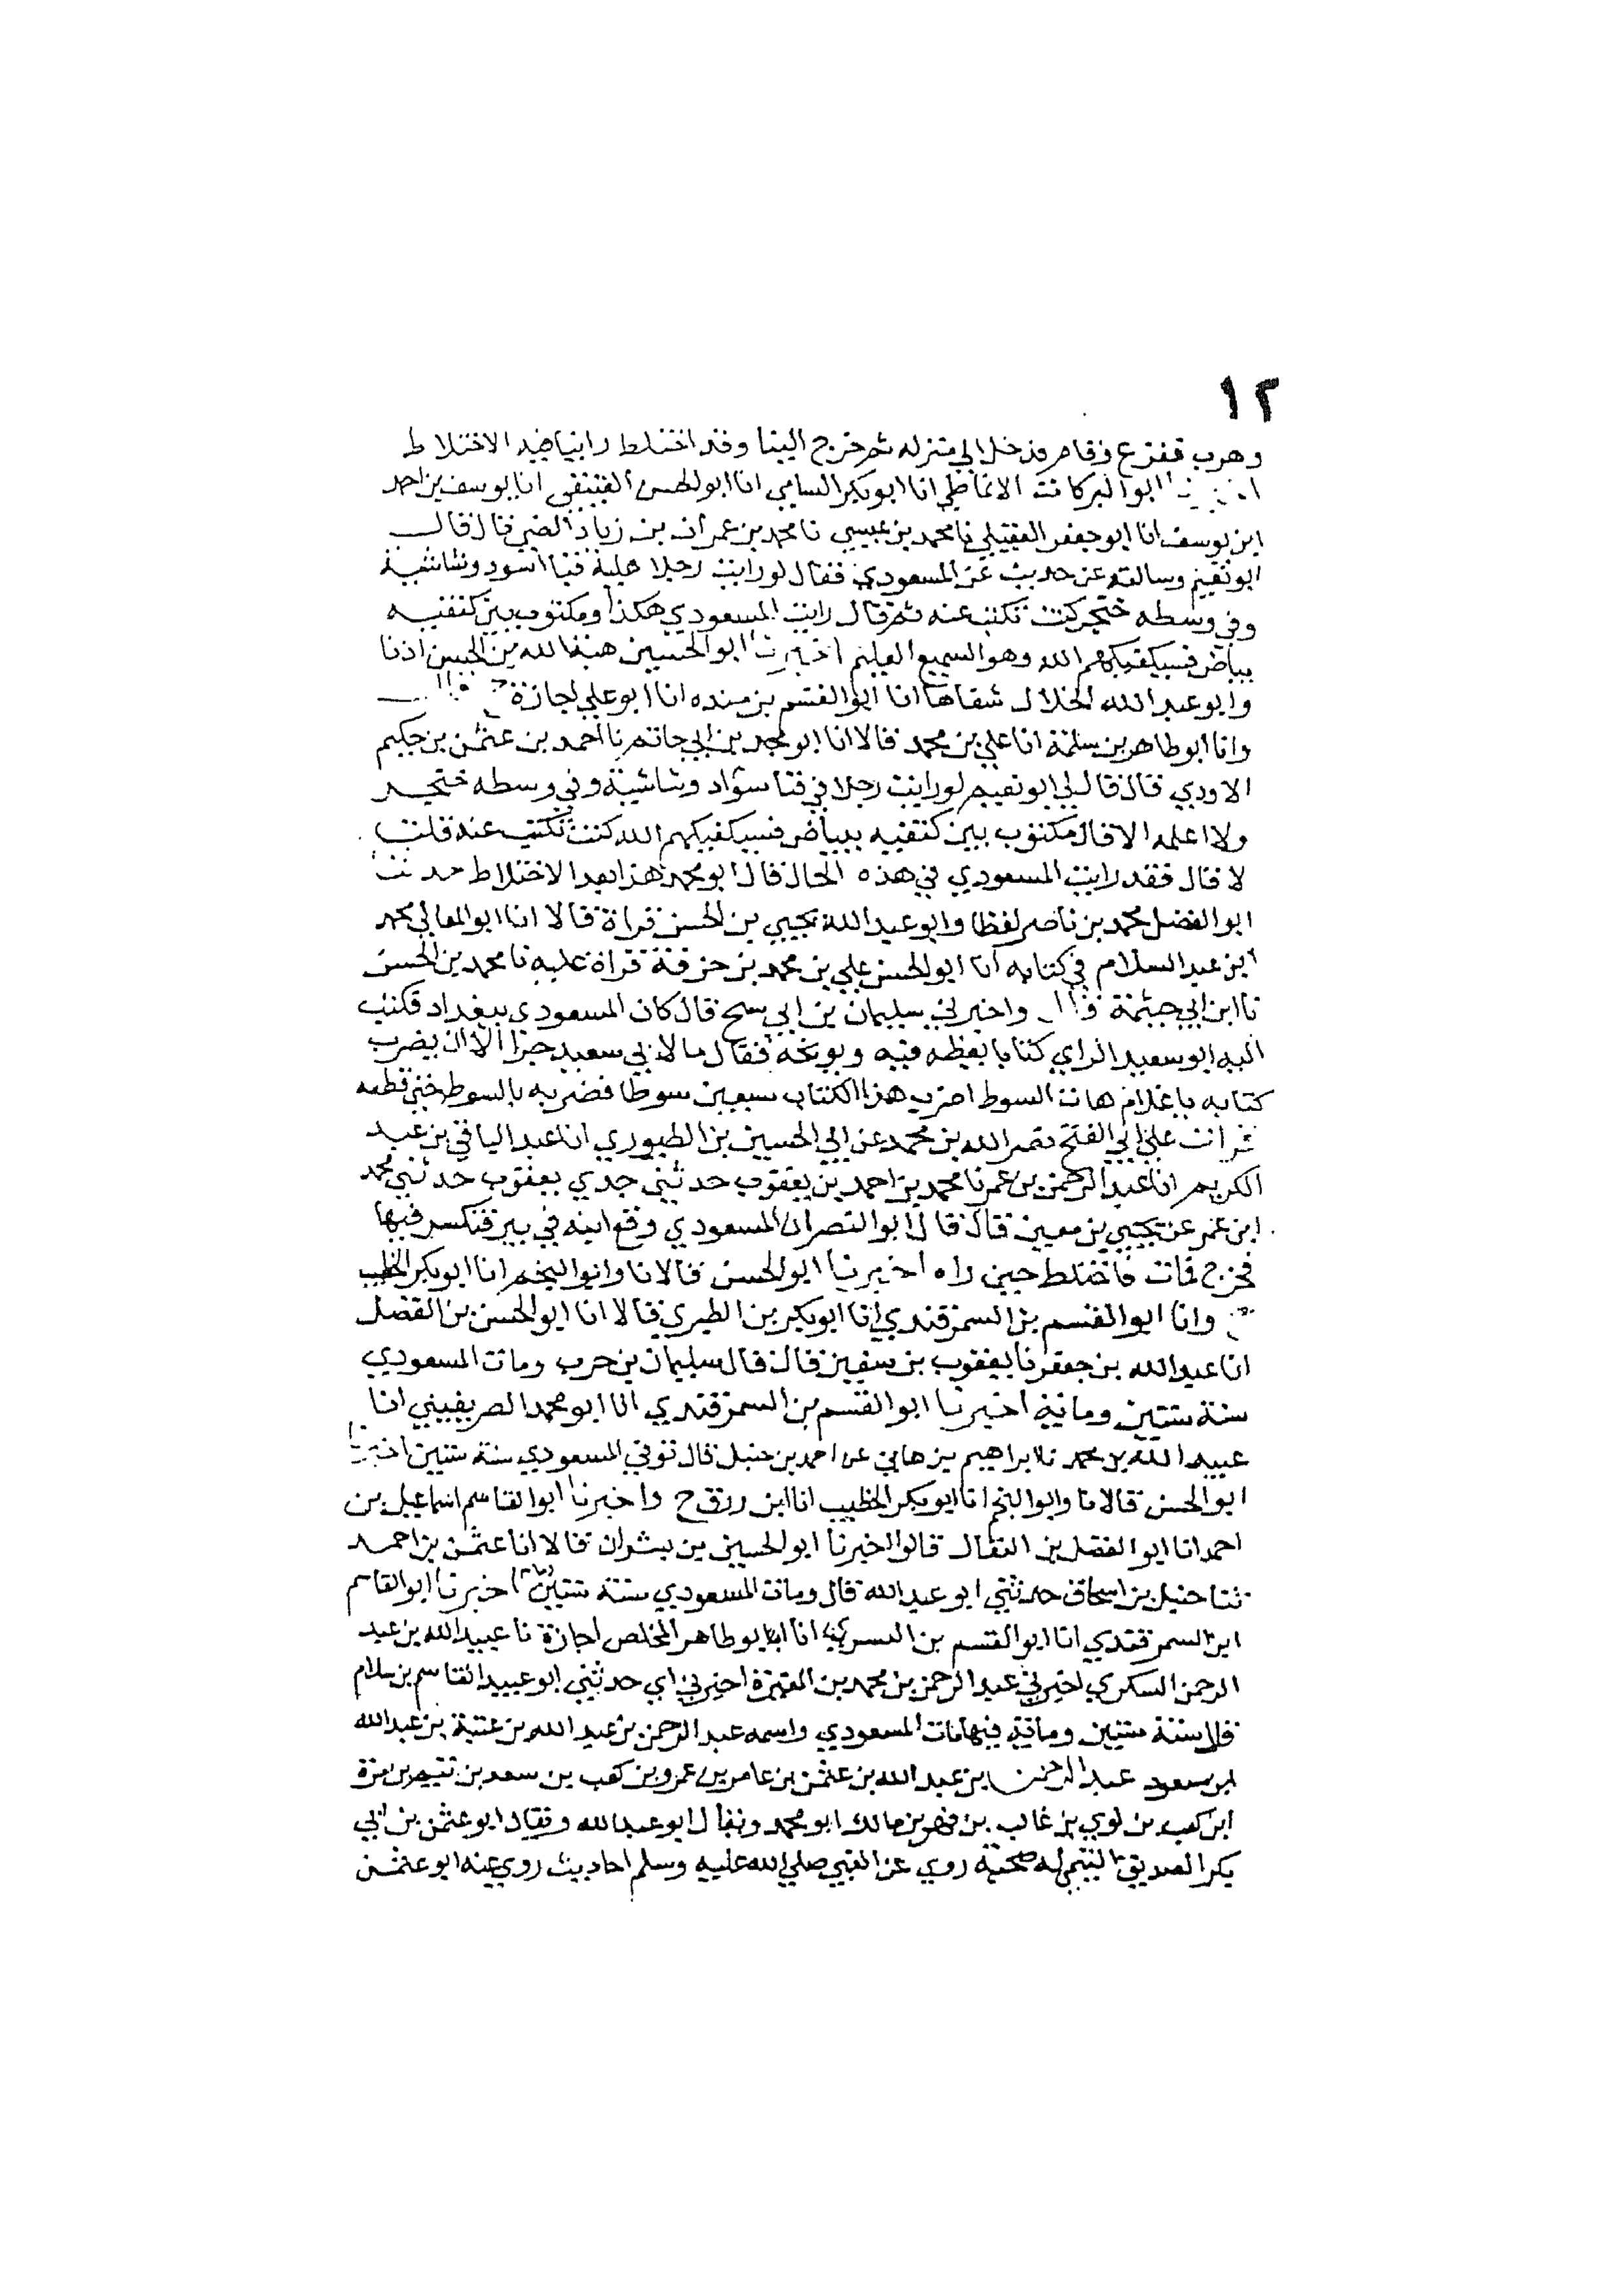 ١٢
وهرب ففزع وقام فدخل الي منزله ثم خرج الينا وقد اختلط راينا فيه الاختلاط
ابو البركات الانماطي انا ابو بكر السامي انا ابو الحسن العتيقي انا يوسف بن احمد
ابن يوسف انا ابو جعفر العقيلي نا محمد بن عيسي نا محمد بن عمران بن زياد الضبي قال قال
ابو نعيم وسالته عن حديث عن المسعودي فقال لو رايت رجلا عليه قبا اسود وشاشية
وفي وسطه خنجر كنت تكتب عنه ثم قال رايت المسعودي هكذا ومكتوب بين كتفيه
ببياض فسيكفيكهم الله وهو السميع العليم اخبرنا ابو الحسين هبة الله بن الحسن اذنا
وابو عبد الله الخلال شفاها انا ابو القسم بن منده انا ابو علي اجازة ح قال
وانا ابو طاهر بن سلمة انا علي بن محمد قالا انا ابو محمد بن ابي حاتم نا احمد بن عثمن بن حكيم
الاودي قال قال لي ابو نعيم لو رايت رجلا في قبا سواد وشاشية وفي وسطه خنجر
ولا اعلمه الا قال مكتوب بين كتفيه ببياض فسيكفيكهم الله كنت تكتب عنه قلت
لا قال فقد رايت المسعودي في هذه الحال قال ابو محمد هذا بعد الاختلاط حدثنا
ابو الفضل محمد بن ناصر لفظا وابو عبد الله يحيي بن الحسن قراة قالا انا ابو المعالي محمد
ابن عبد السلام في كتابه انا ابو الحسن علي بن محمد بن خزفة قراة عليه نا محمد بن الحسن
نا ابن ابي خيثمة قال واخبرني سليمان بن ابي شيخ قال كان المسعودي ببغداد فكتب
اليه ابو سعيد الراي كتابا يعظه فيه ويوبخه فقال ما لابي سعيد جزا الا ان يضرب
كتابه يا غلام هات السوط اضرب هذا الكتاب سبعين سوطا فضربه بالسوط حتي قطعه
قرات علي ابي الفتح نصر الله بن محمد عن ابي الحسين بن الطيوري انا عبد الباقي بن عبد
الكريم انا عبد الرحمن بن عمر نا محمد بن احمد بن يعقوب حدثني جدي يعقوب حدثني محمد
ابن عمر عن يحيي بن معين قال قال ابو النصر ان المسعودي وقع ابنه في بير فتكسر فيها
فخرج فمات فاختلط حين راه اخبرنا ابو الحسن قالا نا وابو النجم انا ابو بكر الخطيب
ح وانا ابو القسم بن السمرقندي انا ابو بكر بن الطبري قالا انا ابو الحسن بن الفضل
انا عبد الله بن جعفر نا يعقوب بن سفين قال قال سليمان بن حرب ومات المسعودي
سنة ستين وماية اخبرنا ابو القسم بن السمرقندي انا ابو محمد الصريفيني انا
عبيد الله بن محمد نا ابراهيم بن هاني عن احمد بن حنبل قال توفي المسعودي سنة ستين اخبرنا
ابو الحسن قالا نا وابو النجم انا ابو بكر الخطيب انا ابن رزق ح واخبرنا ابو القاسم اسماعيل بن
احمد انا ابو الفضل بن البقال قالوا اخبرنا ابو الحسين بن بشران قالا انا عثمن بن احمد
ثنا حنبل بن اسحاق حدثني ابو عبد الله قال ومات المسعودي سنة ستين اخبرنا ابو القاسم
ابن السمرقندي انا ابو القسم بن البسري انا ابو طاهر المخلص اجازة نا عبيد الله بن عبد
الرحمن السكري اخبرني عبد الرحمن بن محمد بن المغيرة اخبرني ابي حدثني ابو عبيد القاسم بن سلام
قال سنة ستين وماية فيها مات المسعودي واسمه عبد الرحمن بن عبد الله بن عتبة بن عبد الله
ابن مسعود عبد الرحمن بن عبد الله بن عثمن بن عامر بن عمرو بن كعب بن سعد بن تيم بن مرة
ابن كعب بن لوي بن غالب بن فهر بن مالك ابو محمد ويقال ابو عبد الله ويقال ابو عثمن بن ابي
بكر الصديق التيمي له صحبة روي عن النبي صلي الله عليه وسلم احاديث روي عنه ابو عثمن